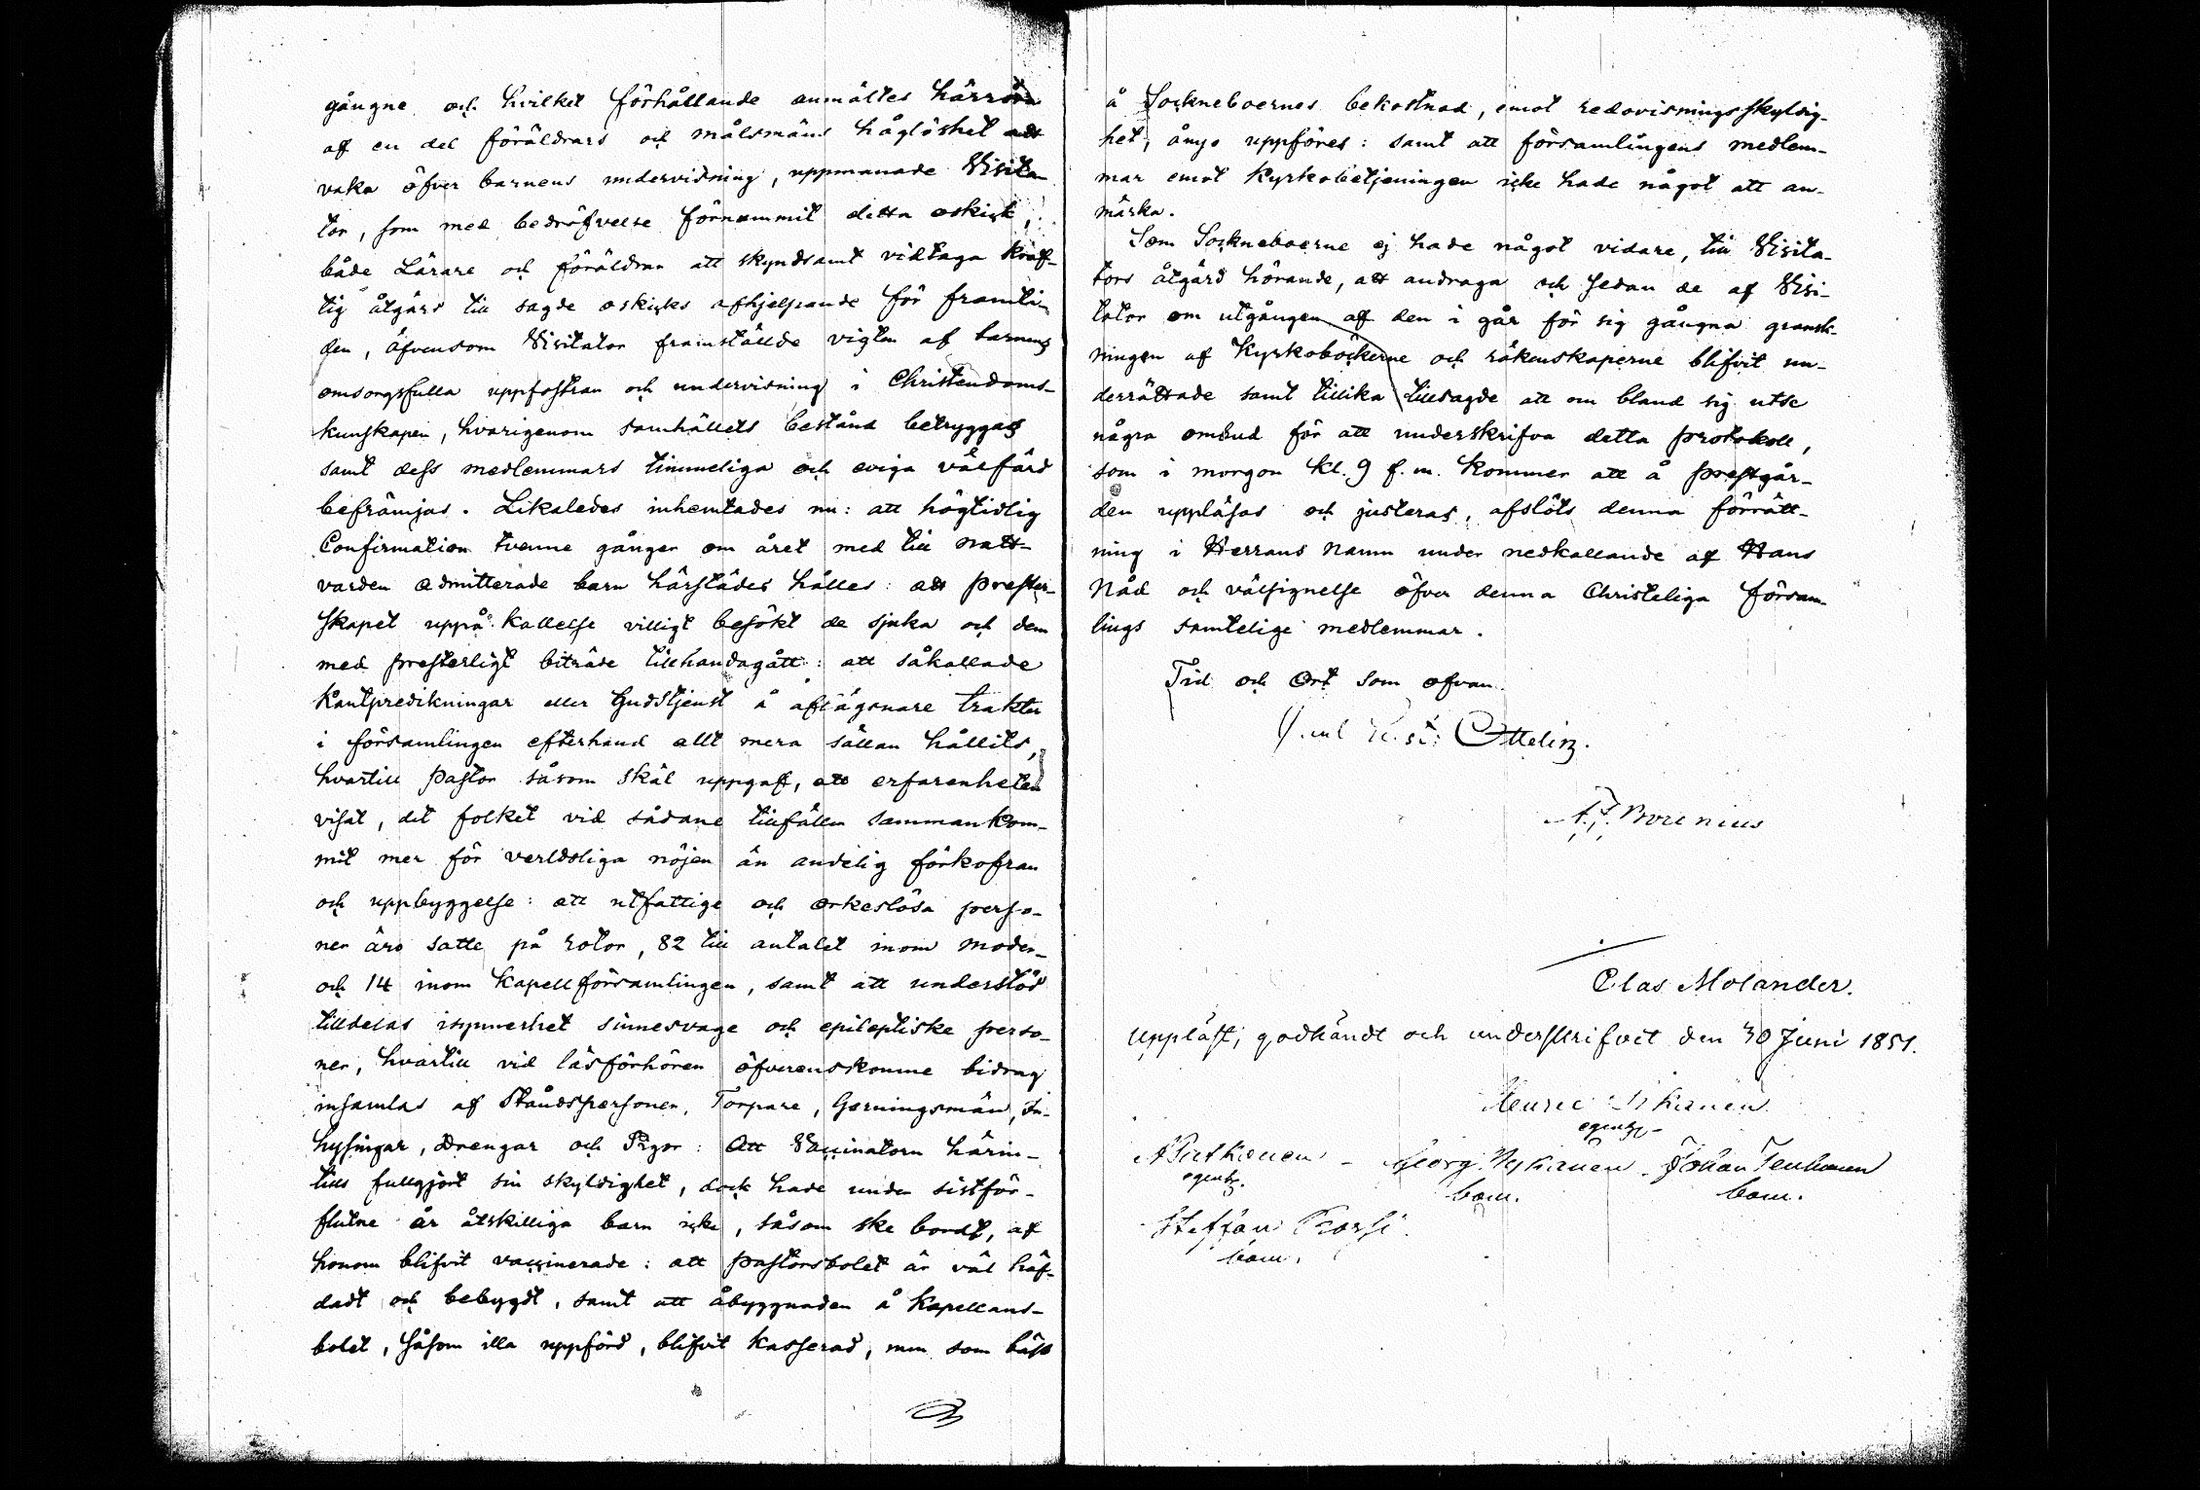 gångne och hvilket förhållande anmältes härröra
af en del föräldrars och målsmäns håglöshet att
vaka öfver barnens undervisning, uppmanade Visita-
tor, som med bedröfvelse förnummit detta oskick,
både Lärare och föräldrar att skyndsamt vidtaga kräf-
tig åtgärd till sagde oskicks afhjelpande för framti-
den, äfvensom Visitator framställde vigten af barnens
omsorgsfulla uppfostran och undervisning i Christendoms-
kunskapen, hvarigenom samhällets bestånd betryggas
samt dess medlemmars timmeliga och eviga välfärd
befrämjas. Likaledes inhemtades nu: att högtidlig
Confirmation tvenne gånger om året med till natt-
varden admitterade barn härstädes hålles: att prester-
skapet uppå kallelse villigt besökt de sjuka och dem
med presterligt biträde tillhandagått: att såkallade
Kantpredikningar eller Gudstjenst å aflägsnare trakter
i församlingen efterhand allt mera sällan hållits,
hvartill Pastor såsom skäl uppgaff, att erfarenheten
visat, det folket vid sådane tillfällen sammankom-
mit mer för verldsliga nöjen än andelig förkofran
och uppbyggelse: att utfattige och orkeslösa perso-
ner äro satte på rotor, 82 till antalet inom moder-
och 14 inom Kapellförsamlingen, samt att understöd
tilldelas isynnerhet sinnesvage och epileptiske perso-
ner, hvartill vid läsförhören öfverenskomne bidrag
insamlas af Ståndspersoner, Torpare, Gerningsmän, In-
hysingar, Drengar och Pigor: Att Vaccinatorn härin-
tills fullgjort sin skyldighet, dock hade under sistför-
flutne år åtskilliga barn icke, såsom ske bordt, af
honom blifvit vaccinerade: att Pastorsbolet är väl häf-
dadt och bebygdt, samt att åbyggnaden å Kapellans-
bolet, såsom illa uppförd, blifvit kasserad, men som bäst
å Sockneboernes bekostnad, emot redovisningsskyldig-
het, ånyo uppföres: samt att församlingens medlem-
mar emot Kyrkobetjeningen icke hade något att an-
märka.
Som Sockneboerne ej hade något vidare, till Visita-
tors åtgärd hörande, att andraga och sedan de af Visi-
tator om utgången af den i går för sig gångna gransk-
ningen af Kyrkoböckerne och räkenskaperne blifvit un-
derrättade samt tillika tillsagde att om bland sig utse
några ombud för att underskrifva detta protokoll,
som i morgon kl. 9 f.m. kommer att å prestgår-
den uppläsas och justeras, afslöts denna förrätt-
ning i Herrans Namn under nedkallande af Hans
Nåd och välsignelse öfver denna Christeliga försam-
lings samtelige medlemmar.
Tid och Ort som ofvan.
Ottelin.
A.F. Borenius
Clas Molander.
Uppläst, godkändt och underskrifvit den 30 Juni 1851.
Johan
bom. bom.
Steffan
bom.